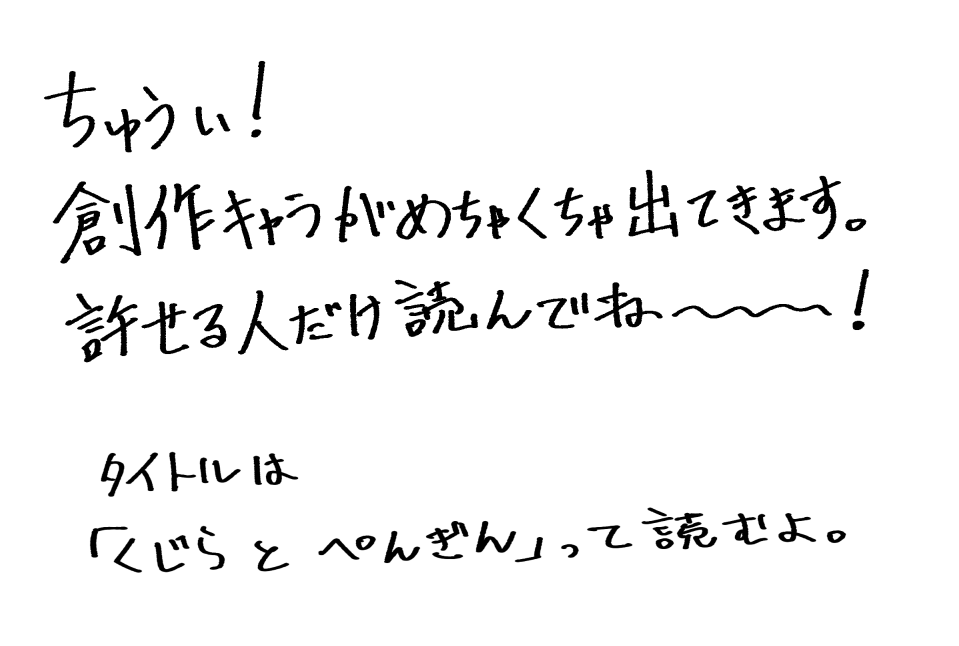 ちゅうい!
創作キャラがめちゃくちゃ出てきます。
許せる人だけ読んでね〜〜〜!
タイトルは
「くじらとぺんぎん」って読むよ。